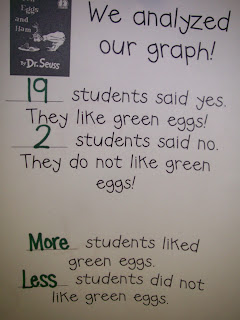 Eggs
and
Ham
by Dr. Seuss
We analyzed
our graph!
19 students said yes.
They like green eggs!
2 students said no.
They do not like green
eggs!
More students liked
green eggs.
Less students did not
like green eggs.